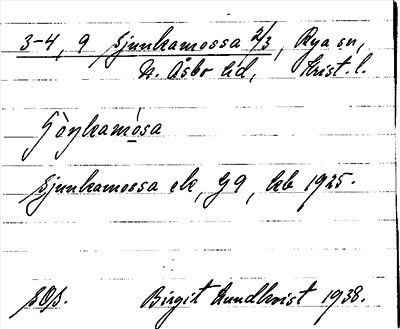 3-4, 9 Sjunkamossa 2/3, Rya sn,
N. Åsbo hd, Krist. l.
Sjunkamossa ek, G9, kb 1925.
Birgit Lundkvist 1938.